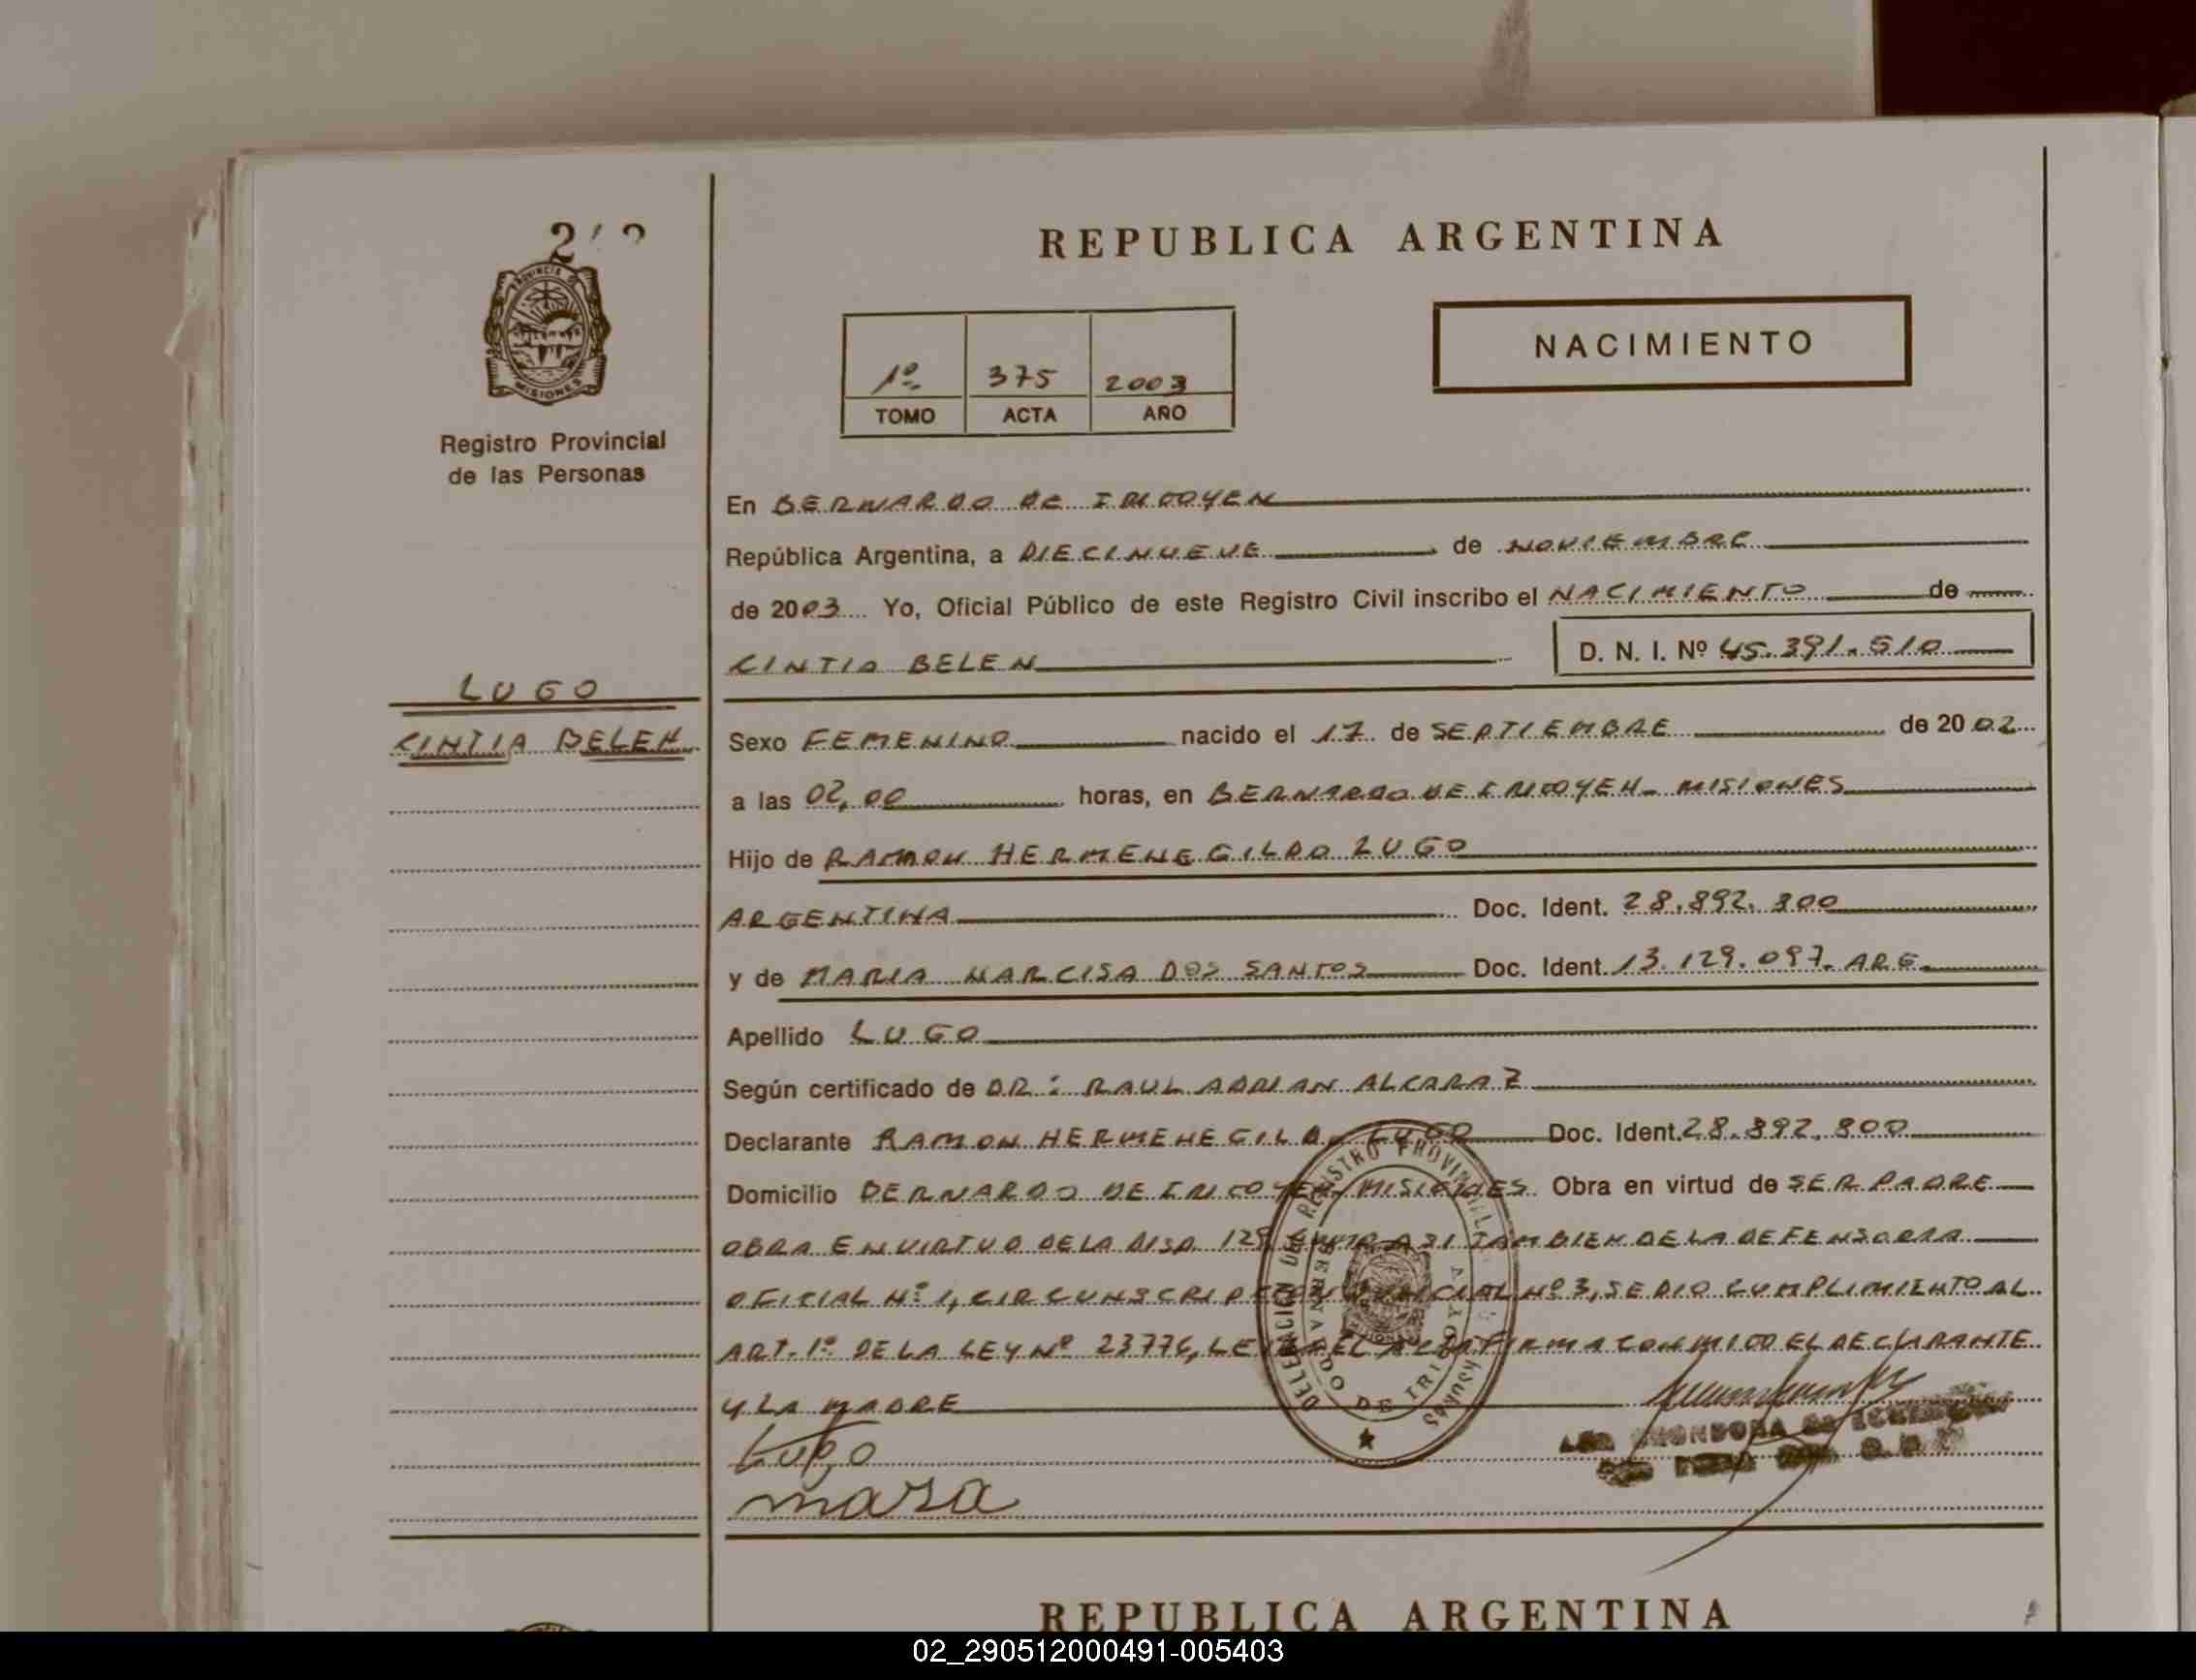 REPUBLICA ARGENTINA
PROVINCIA DE
MISIONES
Registro Provincial
de las Personas
1º 375 2003
TOMO ACTA AÑO
NACIMIENTO
En BERNARDO DE IRIGOYEN
República Argentina, a DIECINUEVE de NOVIEMBRE
de 2003 Yo, Oficial Público de este Registro Civil inscribo el NACIMIENTO de
CINTIA BELEN D. N. I. Nº 45.391.510
LUGO
CINTIA BELEN
Sexo FEMENINO nacido el 17 de SEPTIEMBRE de 2002
a las 02,00 horas, en BERNARDO DE IRIGOYEN - MISIONES
Hijo de RAMON HERMENEGILDO LUGO
ARGENTINA Doc. Ident. 28.892.800
y de MARIA NARCISA DOS SANTOS Doc. Ident. 13.129.097. ARG.
Apellido LUGO
Según certificado de DR: RAUL ADRIAN ALCARAZ
Declarante RAMON HERMENEGILDO LUGO Doc. Ident. 28.892.800
Domicilio BERNARDO DE IRIGOYEN - MISIONES Obra en virtud de SER PADRE
OBRA EN VIRTUD DE LA DISP. ASI TAMBIEN DE LA DEFENSORIA
OFICIAL Nº 1, CIRCUNSCRIPCION JUDICIAL Nº 3, SE DIO CUMPLIMIENTO AL
ART. 1º DE LA LEY Nº 23776, LEIDA EL ACTA FIRMA CONMIGO EL DECLARANTE
Y LA MADRE
DELEGACION DEL REGISTRO PROVINCIAL
BERNARDO DE IRIGOYEN
MISIONES
Lugo
REPUBLICA ARGENTINA
02_290512000491-005403